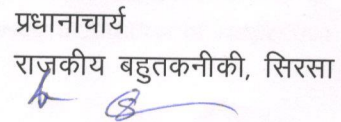 प्रधानाचार्य
राजकीय बहुतकनीकी, सिरसा